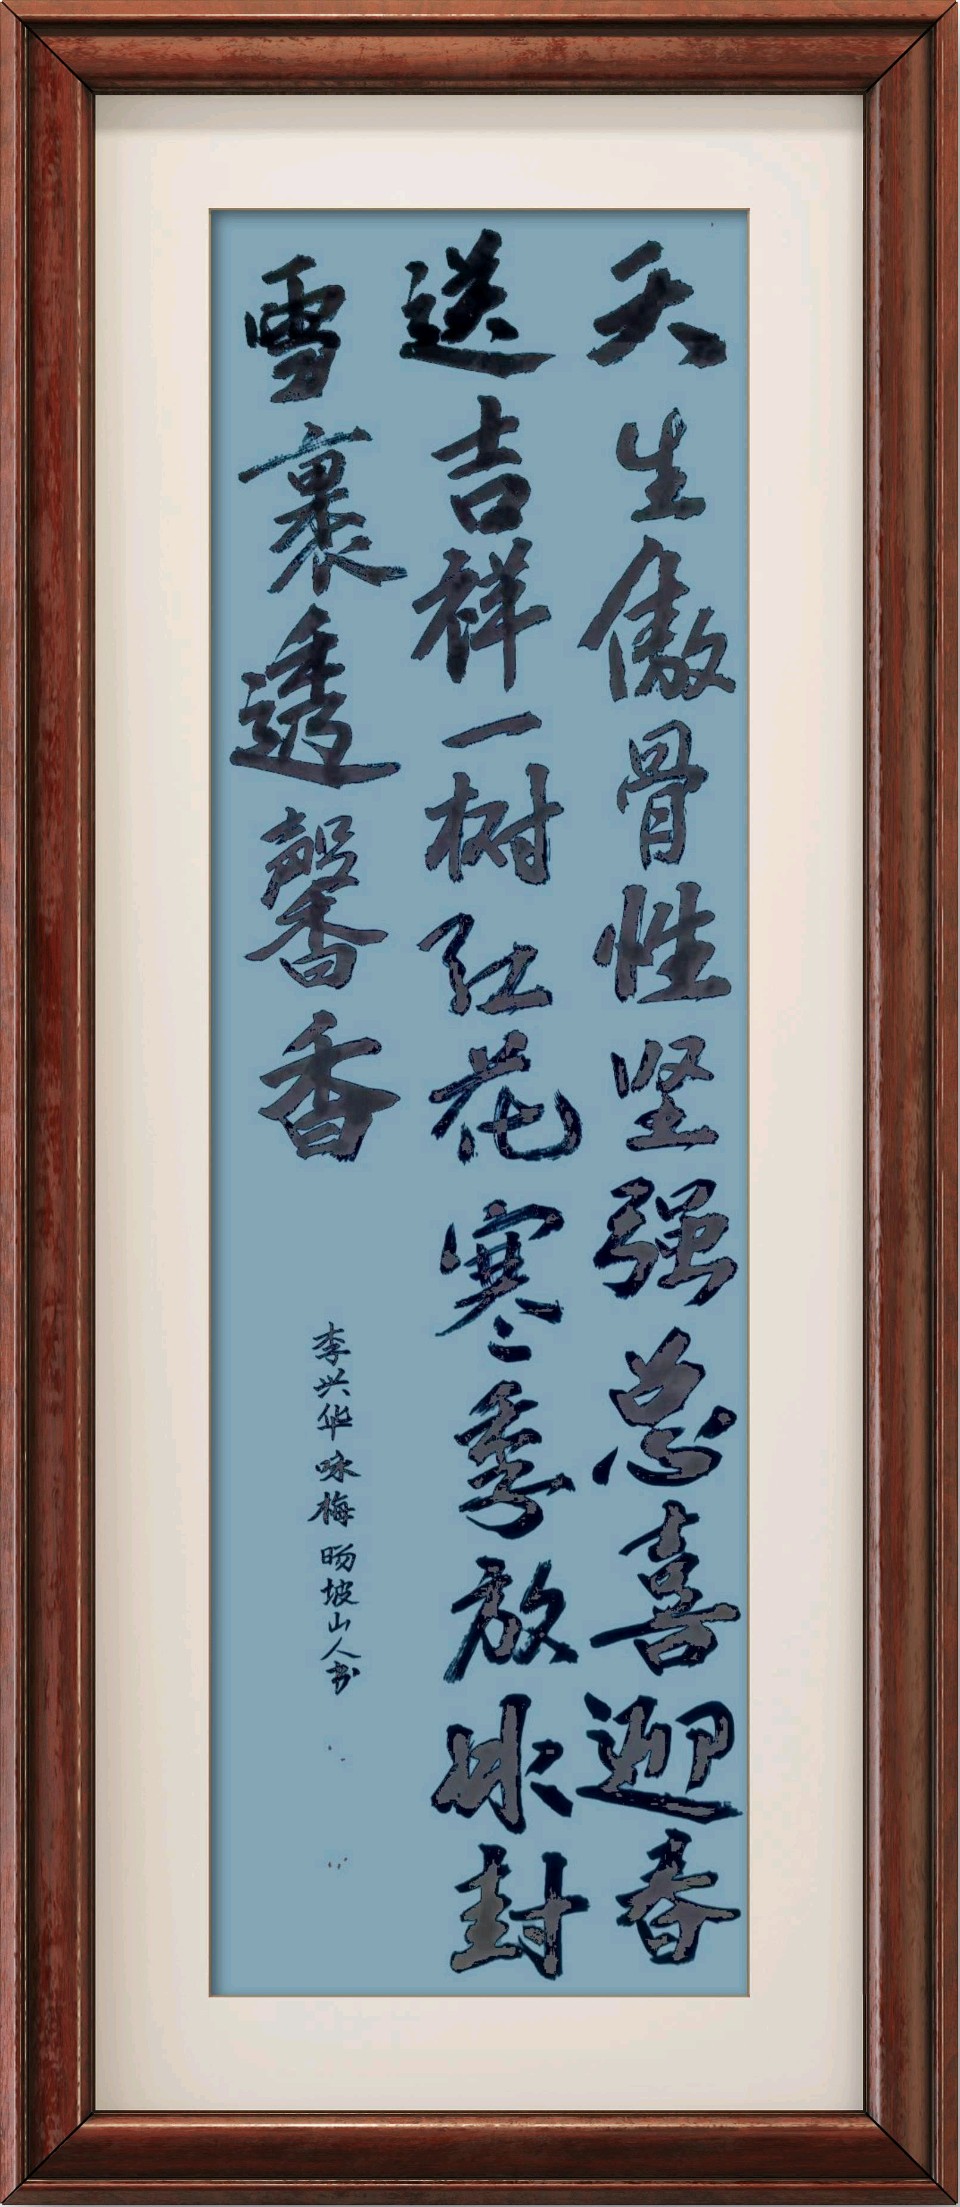 天生傲骨性坚强总喜迎春
送吉祥一树红花寒季放冰封
雪裹透馨香
李兴华咏梅 旸坡山人书